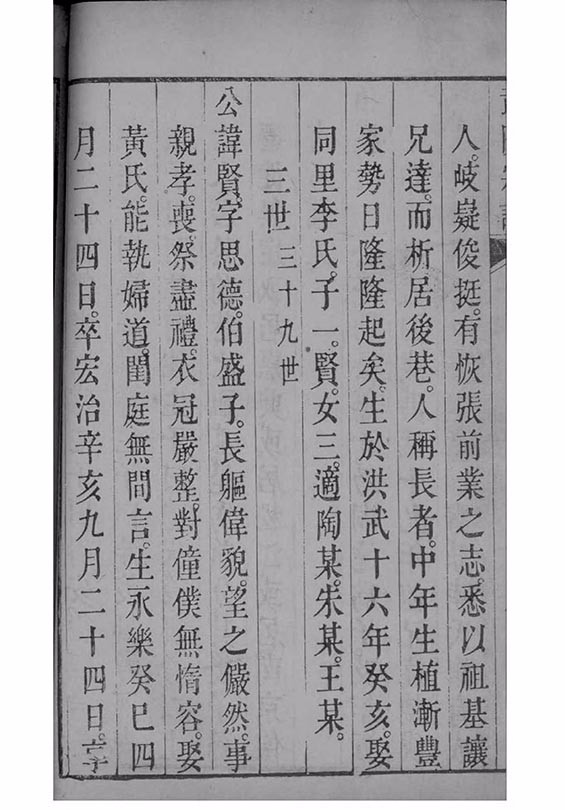 人。岐嶷俊挺。有恢張前業之志。悉以祖基讓
兄達。而析居後巷。人稱長者。中年生植漸豐
家勢日隆隆起矣。生於洪武十六年癸亥。娶
同里李氏。子一。賢。女三。適陶某。朱某。王某。
三世 三十九世
公諱賢。字思德。伯盛子。長軀偉貌。望之儼然。事
親孝。喪祭盡禮。衣冠嚴整。對僮僕無惰容。娶
黃氏。能執婦道。閨庭無間言。生永樂癸巳四
月二十四日。卒宏治辛亥九月二十四日。享